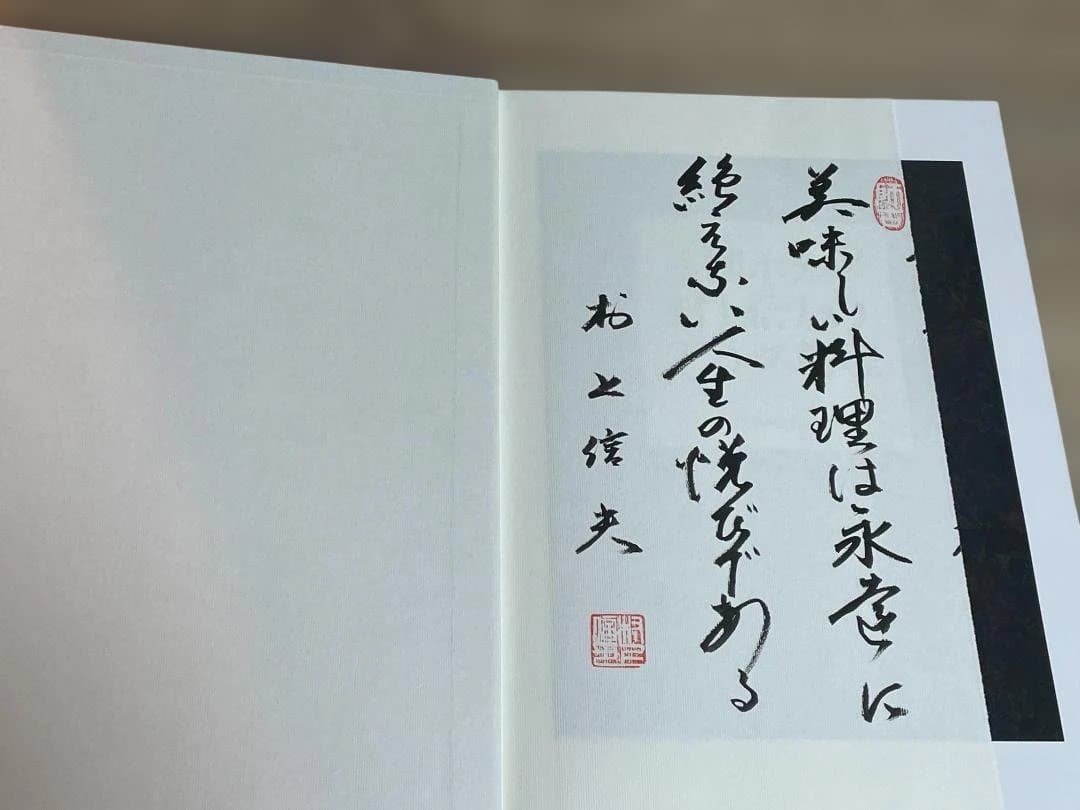 美味しい料理は永遠に
絶えない人生の悦びである
村上信夫